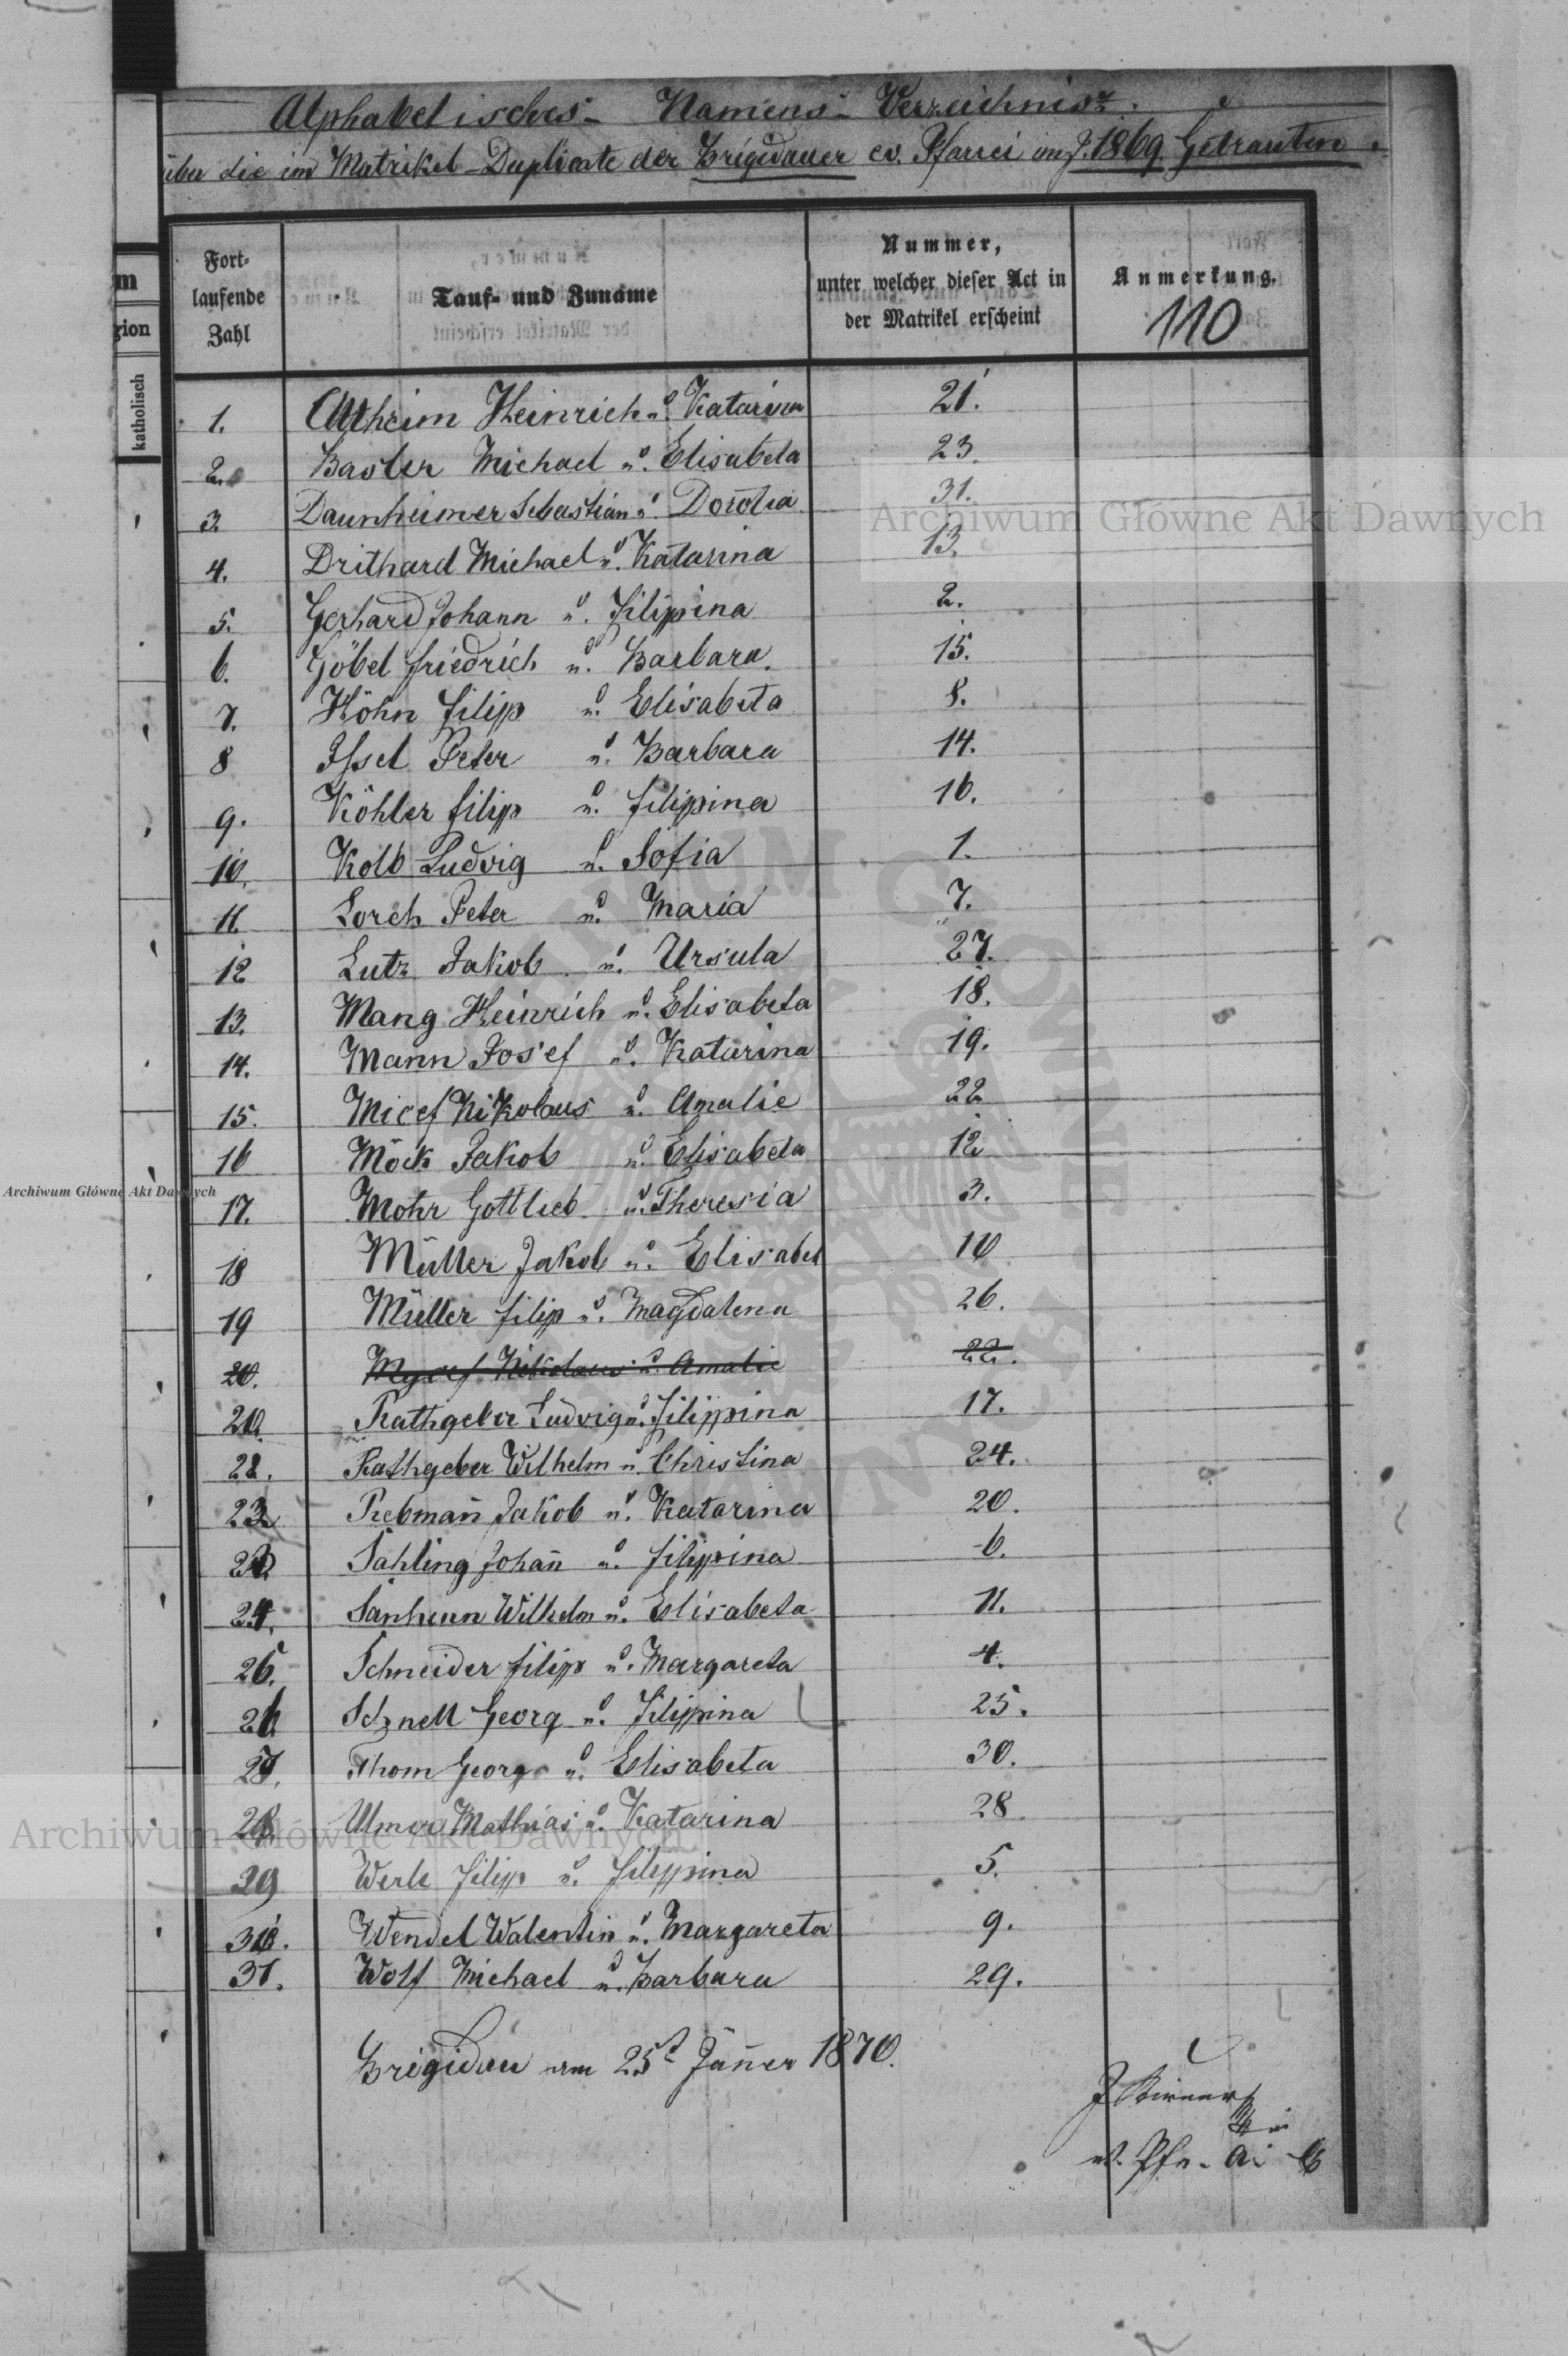 Alphabetisches- Namens- Verzeichnisz.
über die im Matrikel-Duplicate der Brigidauer ev. Pfarrei im J. 1869 Getrauten.
Fort-laufende Zahl | Tauf- und Zuname | Nummer, unter welcher dieser Act in der Matrikel erscheint | Anmerkung.
110
m
gion
katholisch
1. Altheim Heinrich u. Katarina 21.
2. Basler Michael u. Elisabeta 23.
3. Daunheimer Sebastian u. Dorotea 31.
4. Drithard Michael u. Katarina 13.
5. Gerhard Johann u. Filippina 2.
6. Göbel Friedrich u. Barbara. 15.
7. Höhn Filip u. Elisabeta 8.
8 Issel Peter u. Barbara 14.
9. Köhler Filip u. Filippina 16.
10. Kolb Ludvig u. Sofia 1.
11. Lorch Peter u. Maria 7.
12 Lutz Jakob u. Ursula 27.
13. Mang Heinrich u. Elisabeta 18.
14. Mann Josef u. Katarina 19.
15. Micef Nikolaus u. Amalie 22
16 Möck Jakob u. Elisabeta 12
17. Mohr Gottlieb u. Theresia 3.
18 Müller Jakob u. Elisabet 10
19 Müller Filip u. Magdalena 26.
20. Nikolaus u. Amalie 22.
20. Rathgeber Ludvig u. Filippina 17.
21. Rathgeber Wilhelm u. Christina 24.
Rebmañ Jakob u. Katarina 20.
Sahling Johañ u. Filippina 6.
24. Wilhelm u. Elisabeta 11.
25. Schneider Filip u. Margareta 4.
26. Schnell Georg u. Filippina 25.
27. Thom Georg u. Elisabeta 30.
28. Ulmer Mathias u. Katarina 28.
29 Werle Filip u. Filippina 5.
30. Wendel Walentin u. Margareta 9.
31. Wolf Michael u. Barbara 29.
Brigidau am 25t Jäñer 1870.
Archiwum Główne Akt Dawnych
Archiwum Główne Akt Dawnych
Archiwum Główne Akt Dawnych